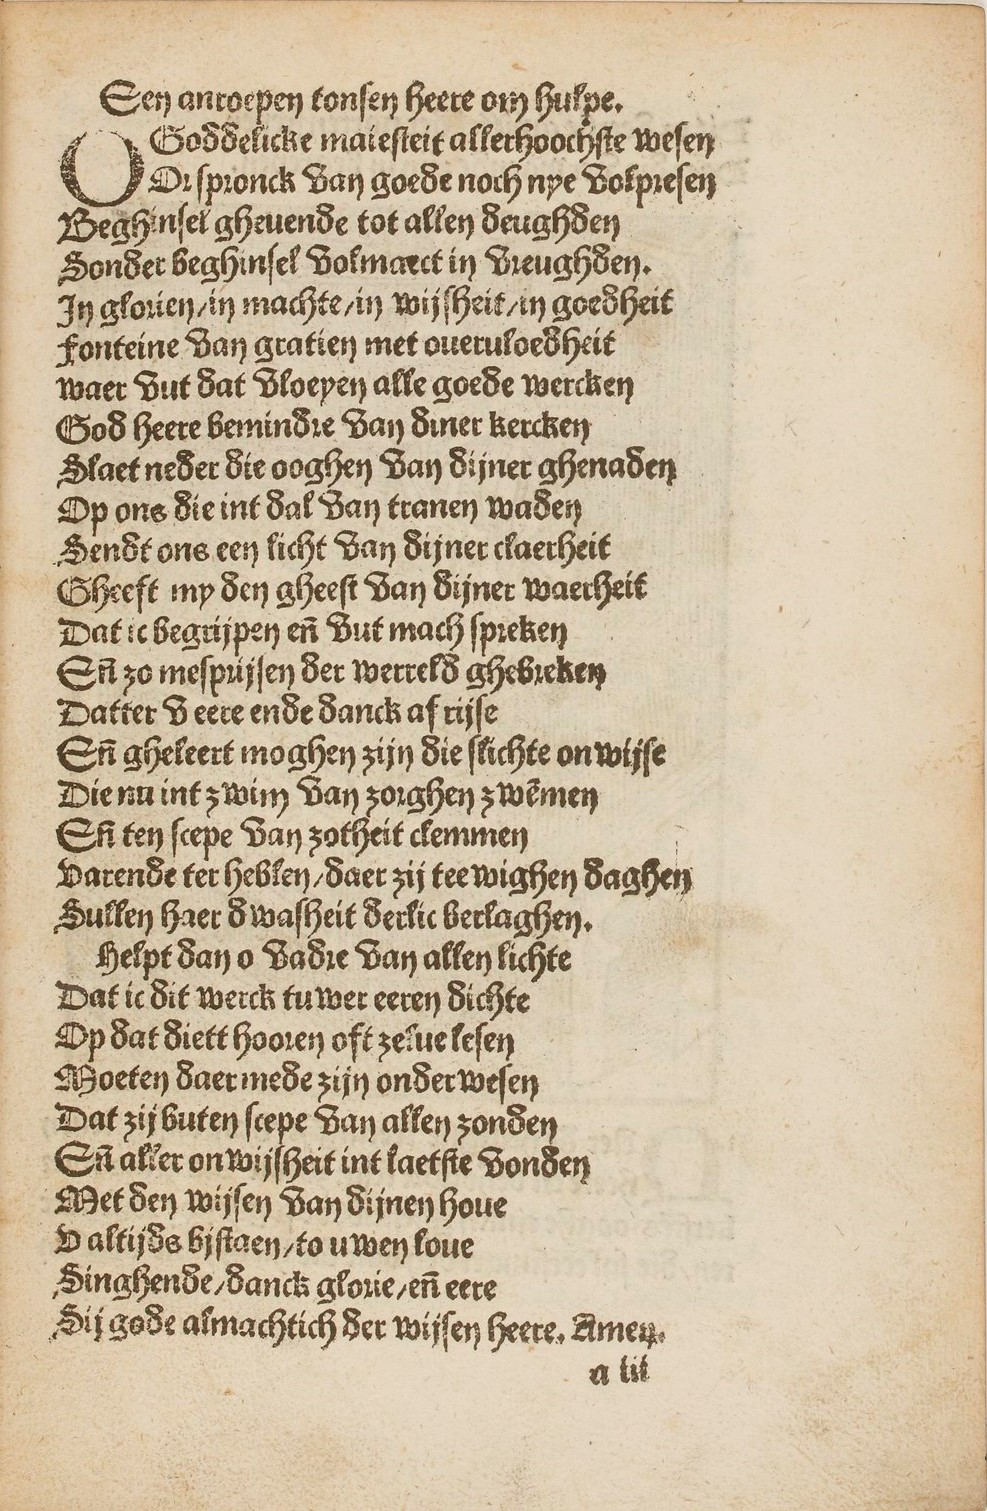 Een anroepen tonsen heere om hulpe.
O Goddelicke maiesteit allerhoochste wesen
Orspronck van goede noch nye volpresen
Beghinsel gheuende tot allen deughden
Sonder beghinsel volmaect in vreughden.
In glorien/in machte/in wijsheit/in goedheit
Fonteine van gratien met oueruloedheit
waer vut dat vloeyen alle goede wercken
God heere bemindre van diner kercken
Slaet neder die ooghen van dijner ghenaden
Op ons die int dal van tranen waden
Sendt ons een licht van dijner claerheit
Gheeft my den gheest van dijner waerheit
Dat ic begrijpen en̄ vut mach spreken
En̄ zo mesprijsen der werreld ghebreken
Datter v eere ende danck af rijse
En̄ gheleert moghen zijn die slichte onwijse
Die nu int zwim van zorghen zwēmen
En̄ ten scepe van zotheit clemmen
Varende ter hehlen/daer zij teewighen daghen
Sullen haer dwasheit derlic berlaghen.
Helpt dan o vadre van allen lichte
Dat ic dit werck tuwer eeren dichte
Op dat diett hooren oft zelue lesen
Moeten daer mede zijn onderwesen
Dat zij buten scepe van allen zonden
En̄ aller onwijsheit int laetste vonden
Met den wijsen van dijnen houe
V altijds bijstaen/to uwen loue
Singhende/danck glorie/en̄ eere
Sij gode almachtich der wijsen heere. Amen.
a iii